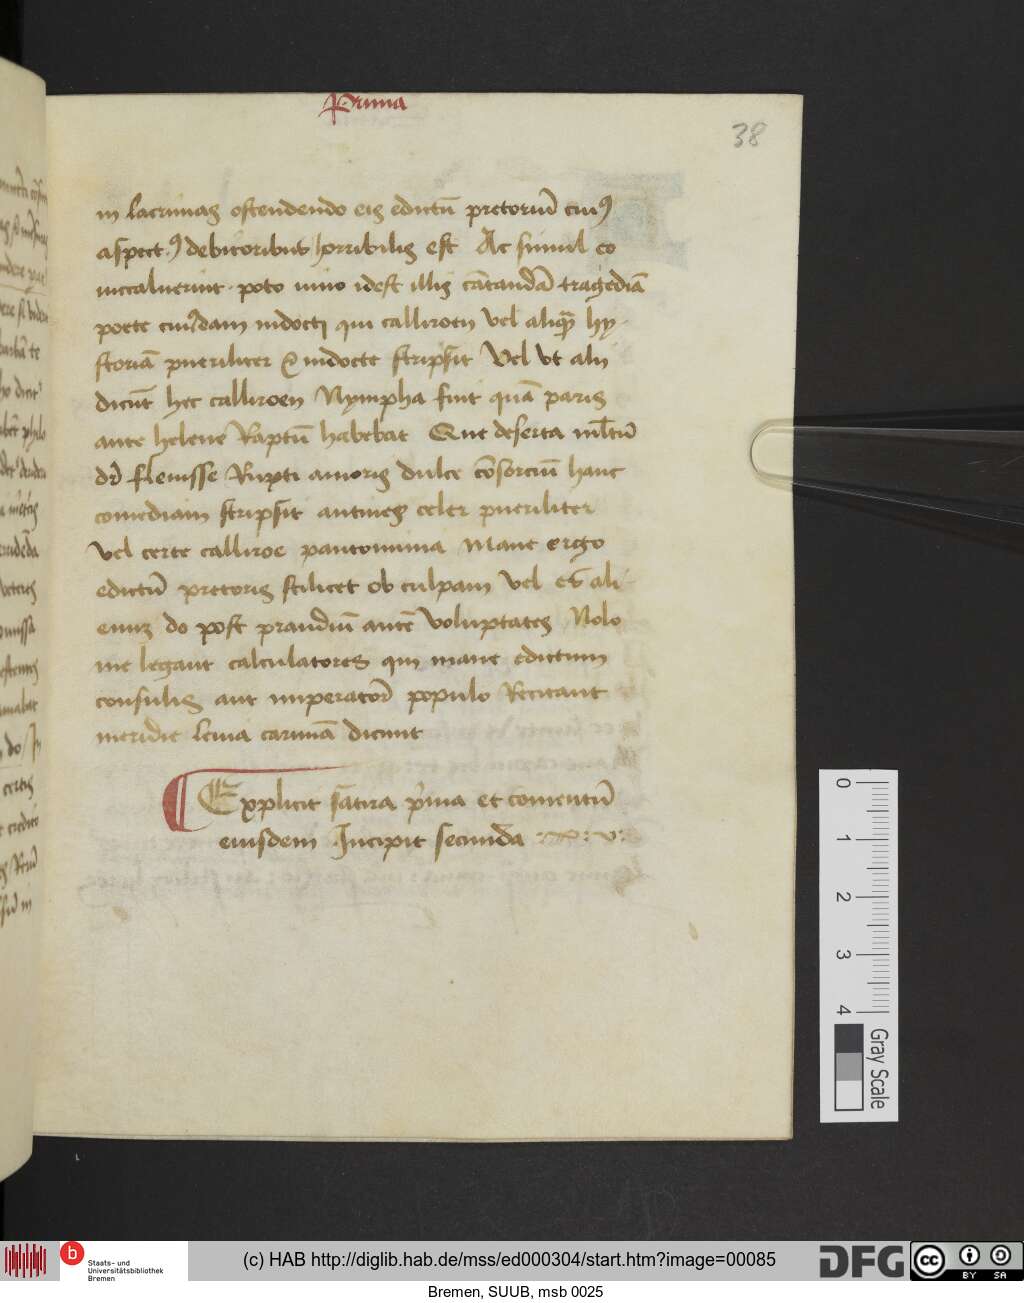 Prima
38
in lacrimas ostendendo eis edictū pretoriū cui⁹
aspect⁹ debitoribus horribilis est Ac simul eo
inccaluerint poto uino idest illis cātandā tragediā
poete cuiusdam indocti qui calliroen vel aliquā hy
storiā pueriliter & indocte scripsit Vel vt alii
dicūt hec calliroen Nympha fuit quā paris
ante helene Raptū habebat Que deserta multū
dr̄ flevisse Rupti amoris dulce cōsorciū hanc
comediam scripsit celer pueriliter
vel certe calliroe pantomima Mane ergo
edictū pretoris scilicet ob culpam vel es ali
enuz do post prandiū autē voluptates Nolo
me legant calculatores qui mane edictum
consulis aut imperator̄ populo Recitant
meridie levia carminā dicunt
Explicit satira p̄ma et comentū
eiusdem Incipit secunda
0
1
2
3
4
Gray Scale
b Staats- und
Universitätsbibliothek
Bremen
(c) HAB http://diglib.hab.de/mss/ed000304/start.htm?image=00085
DFG
cc BY SA
Bremen, SUUB, msb 0025